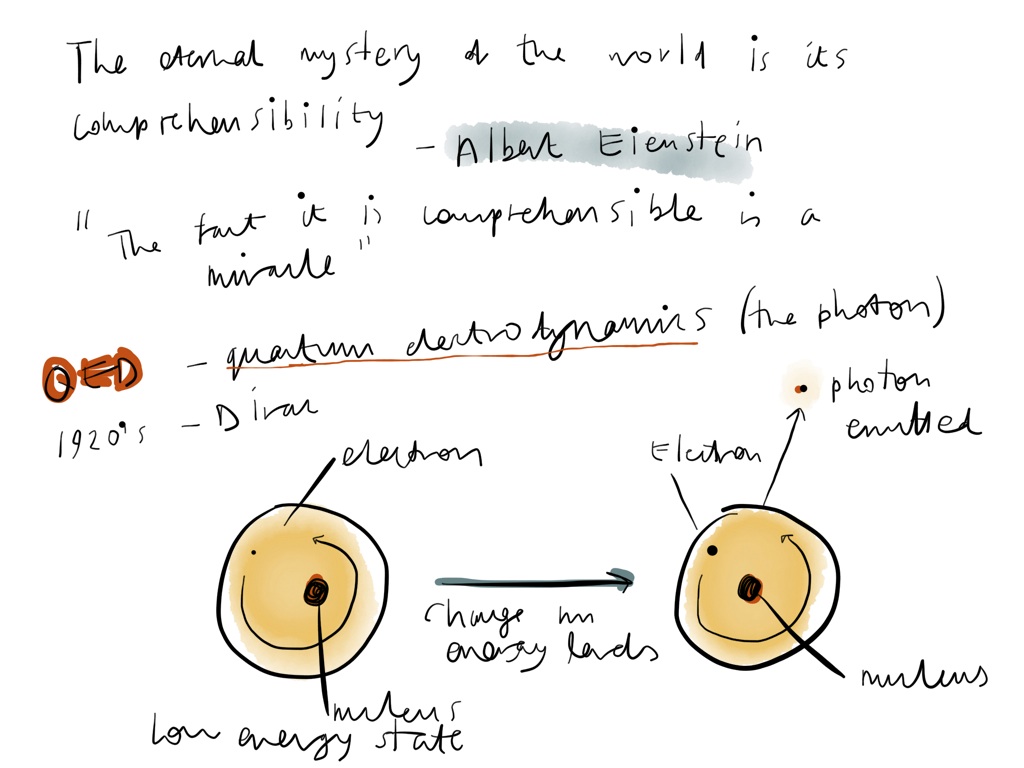 The eternal mystery of the world is its
comprehensibility
- Albert Eienstein
"The fact it is comprehensible is a
miracle"
QED - quantum electrodynamics (the photon)
1920's - Dirac
photon
emitted
electron
Electron
Change in
energy levels
nucleus
nucleus
Low energy state